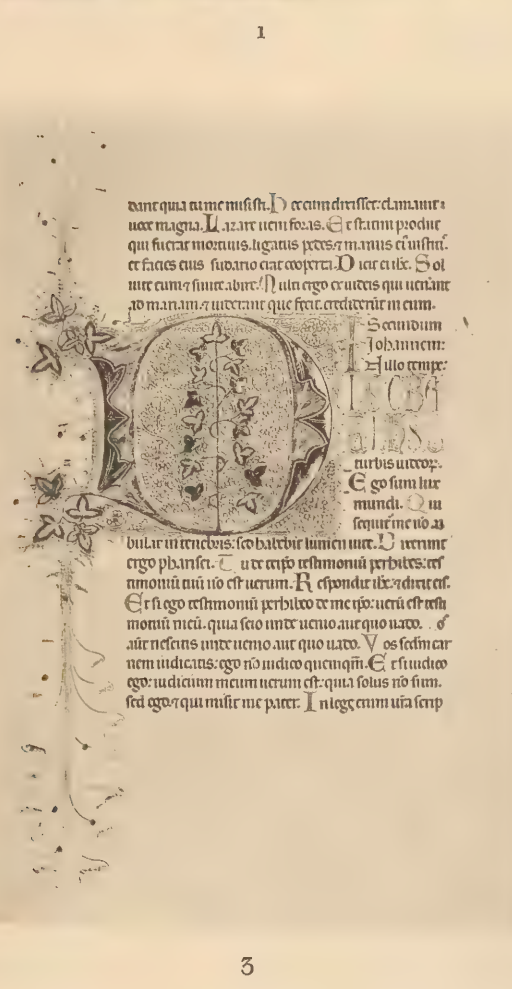 1
dant quia tu me misisti. H ec cum dixisset: clamauit
uoce magna. Lazare ueni foras. Et statim prodiit
qui fuerat mortuus. ligatus pedes. & manus
et facies eius sudario erat cooperta. Dicit eis Sol
uite eum & sinite abire. Multi ergo ex iudeis qui uenerant
ad mariam. & uiderant que fecit. crediderunt in eum.
Secundum
Johannem:
In illo tempr.
turbis iudeor.
Ego sum lux
mundi. Qui
sequitur me nō am
bulat in tenebris: sed habebit lumen uite. D ixerunt
ergo pharisei. Tu de teipo testimoniū perhibes: tes
timoniū tuū nō est uerum. Respondit ihc. & dixit eis.
Et si ego testimoniū perhibeo de me ipo: uerū est testi
moniū meū. quia scio unde uenio aut quo uado.
aūt nescitis unde uenio aut quo uado. Vos sedm car
nem iudicatis: ego nō iudico quemqm̄. Et si iudico
ego: iudicium meum uerum est: quia solus nō sum.
sed ego. & qui misit me pater. In lege enim ur̄a scrip
3